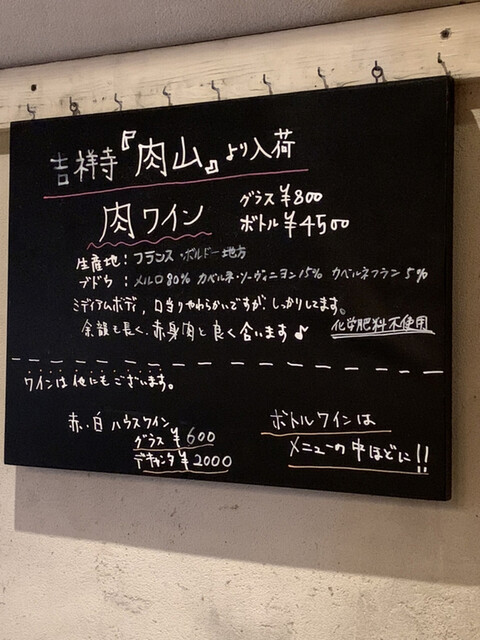 吉祥寺『肉山』より入荷
肉ワイン
グラス ¥800
ボトル ¥4500
生産地：フランス・ボルドー地方
ブドウ：メルロ80% カベルネ・ソーヴィニヨン15% カベルネフラン5%
ミディアムボディ、口当りやわらかいですが、しっかりしてます。
余韻も長く、赤身肉と良く合います♪
化学肥料不使用
ワインは他にもございます。
赤、白 ハウスワイン
グラス ¥600
デキャンタ ¥2000
ボトルワインは
メニューの中ほどに!!